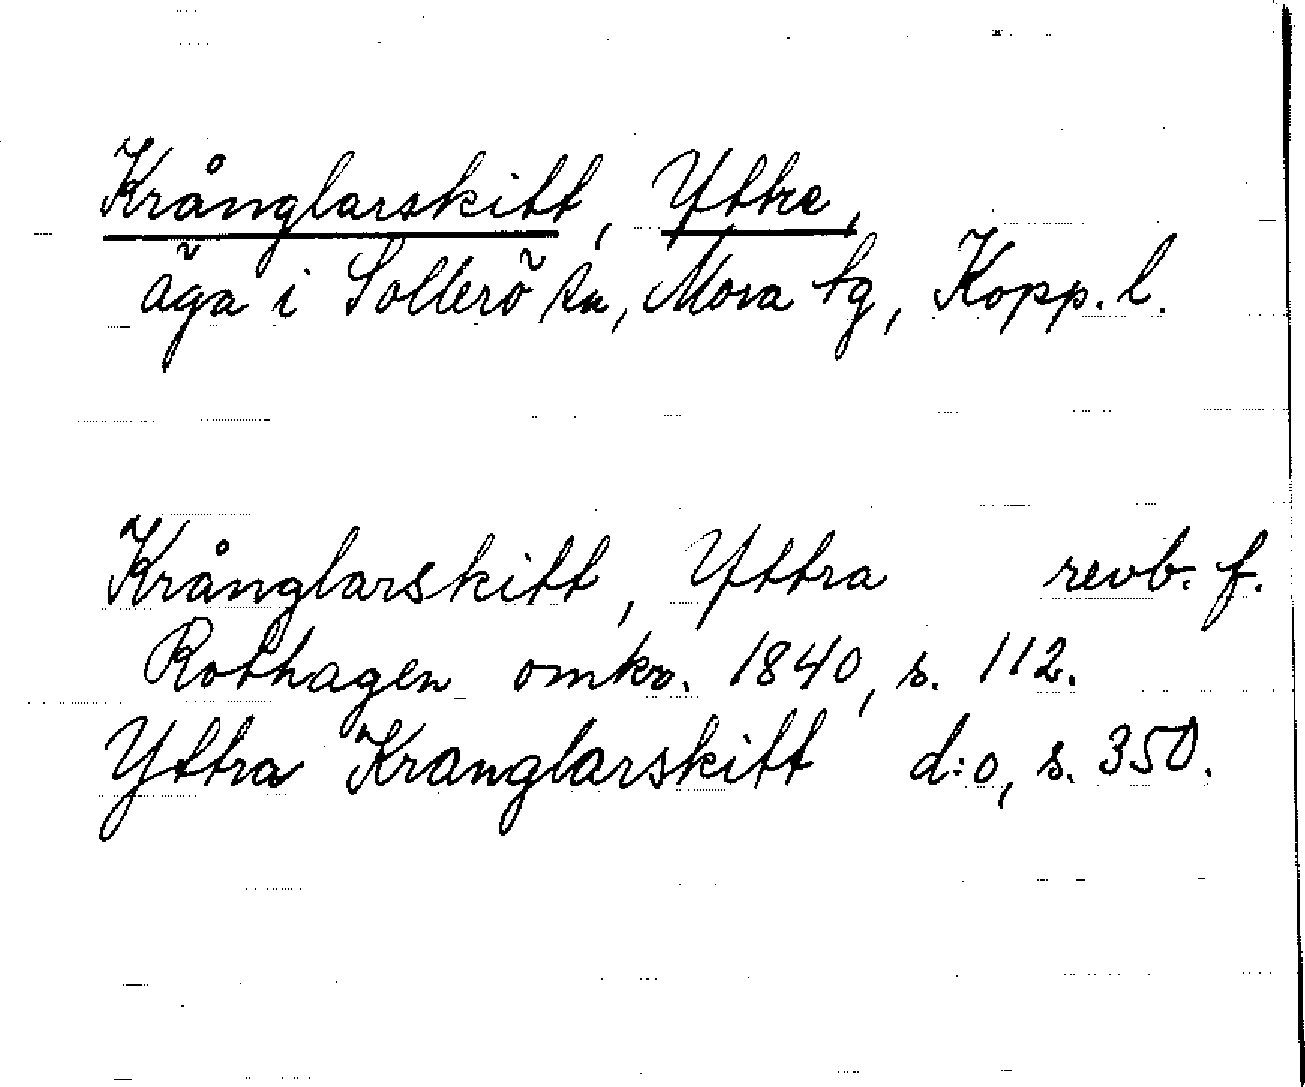 Krånglarskitt, Yttre,
äga i Sollerö sn, Mora tg, Kopp. l.
Krånglarskitt, Yttra revb. f.
Rothagen omkr. 1840, s. 112.
Yttra Kranglarskitt d:o, s. 350.